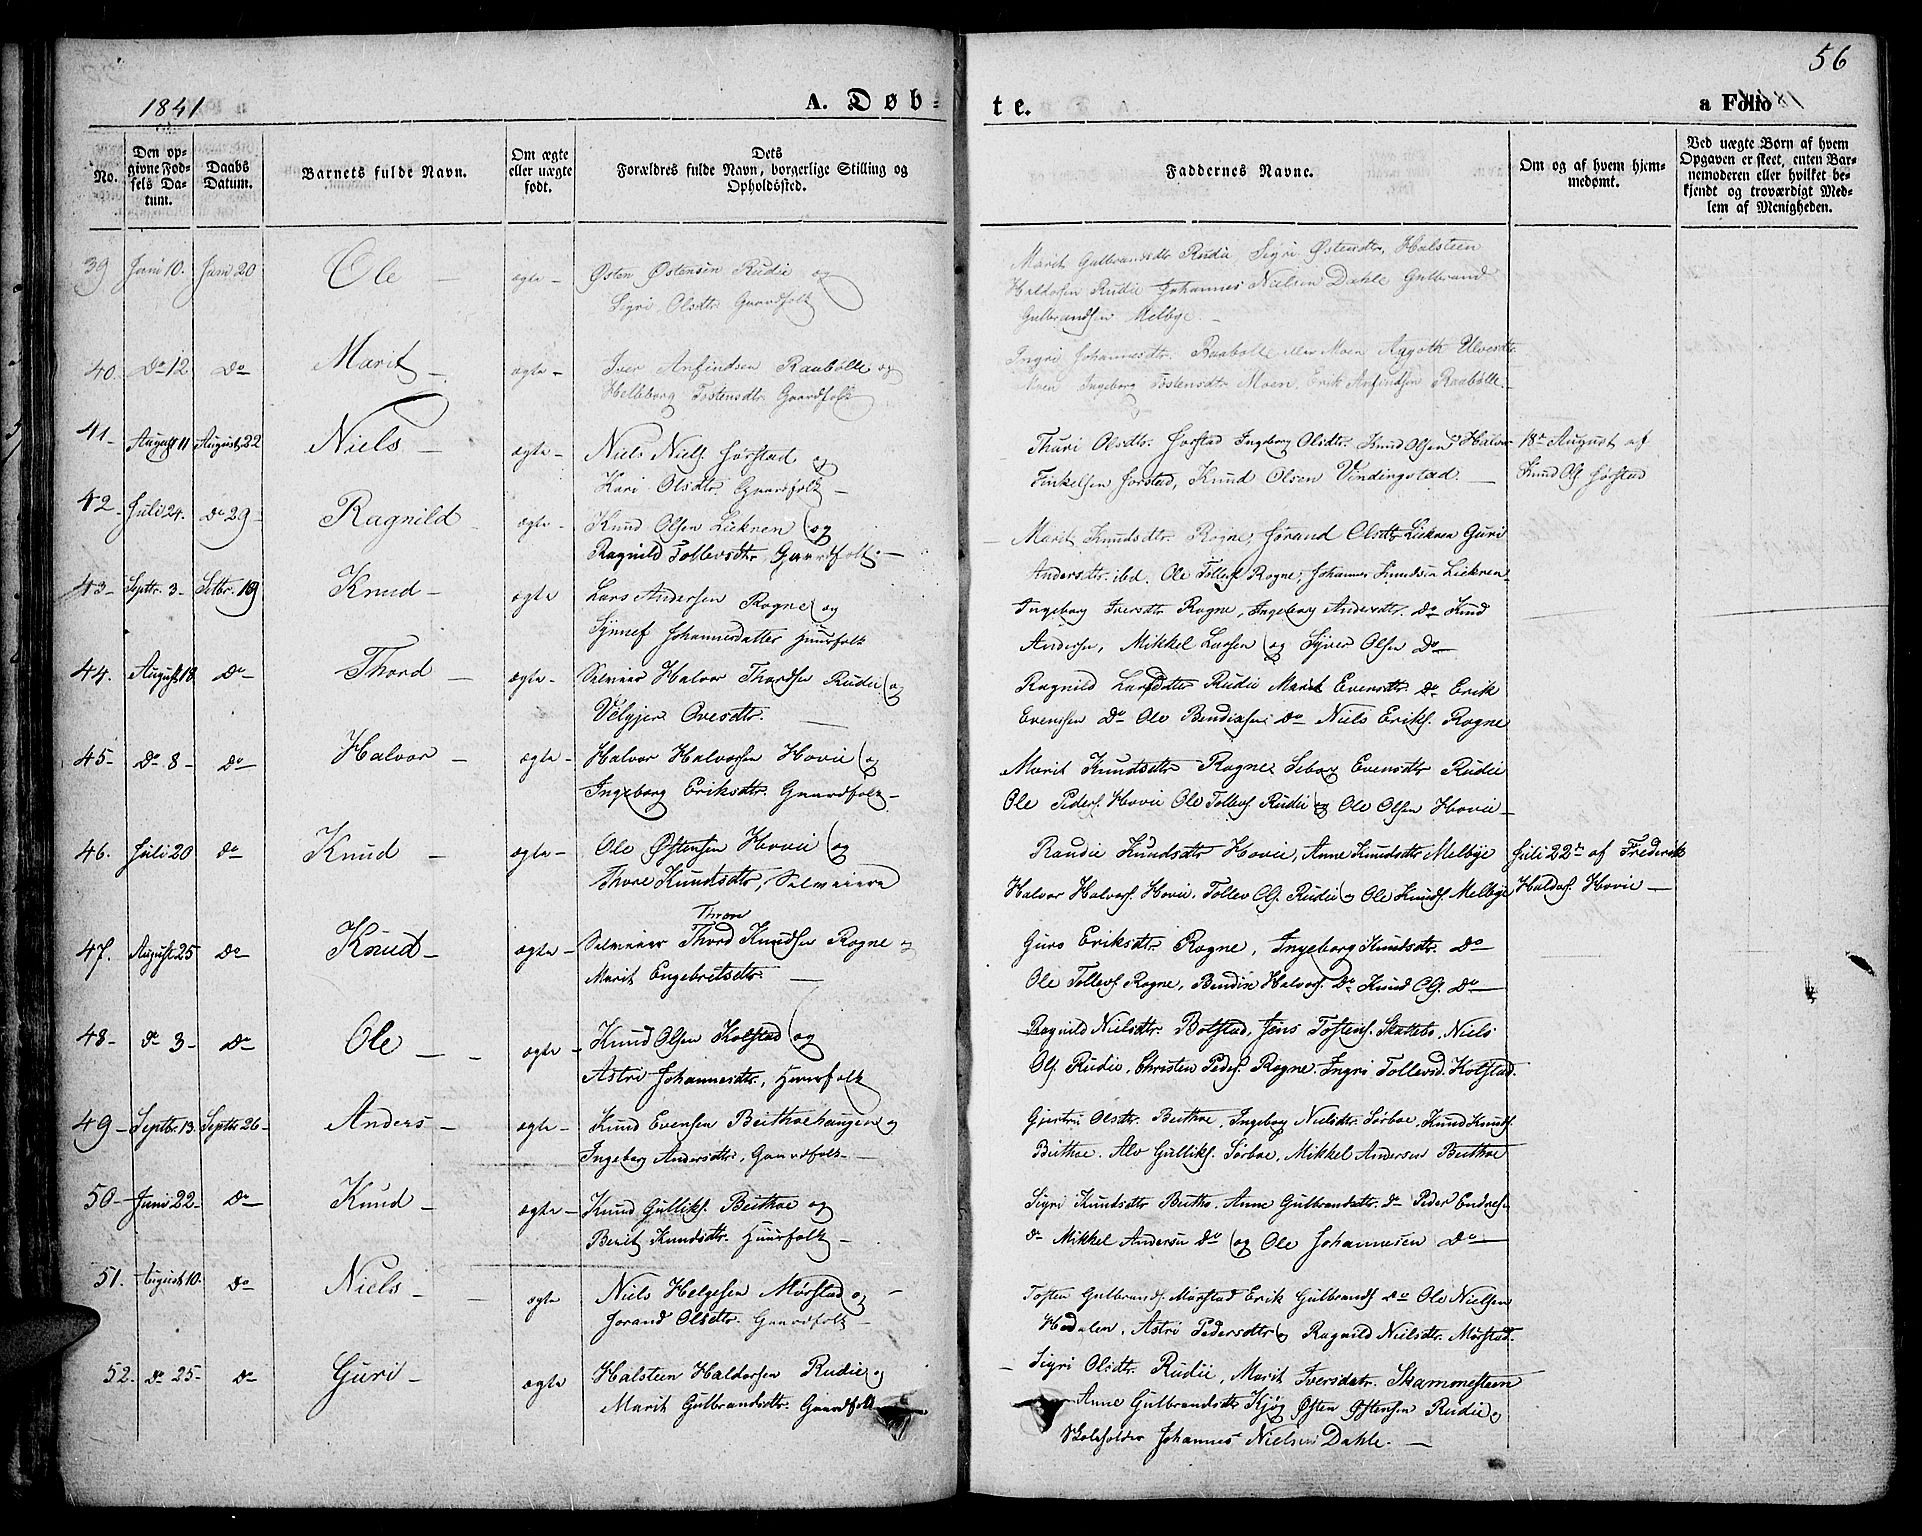 56
1841
A. Døb-
te.
a Folio
No.
Den op-
givne Fød-
sels Da-
tum.
Daabs
Datum.
Barnets fulde Navn.
Om ægte
eller uægte
født.
Dets
Forældres fulde Navn, borgerlige Stilling og
Opholdssted.
Faddernes Navne.
Om og af hvem hjem-
medømt.
Ved uægte Børn af hvem
Opgaven er skeet, enten Bar-
nemoderen eller hvilket be-
kjendt og troværdigt Med-
lem af Menigheden.
39 Juni 10. Juni 20 Ole - ægte - Østen Østensen Rudie og
Sigri Olsdtr. Gaardfolk
Marit Gulbrandsdtr Rudie, Sigri Østensdtr, Halsteen
Haldosen Rudie Johannes Nielsen Dahle Gulbrand
Gulbrandsen Melbye. -
40. Do 12 Do Marit - ægte - Iver Anfindsen Raabølle og
Helleborg Tostensdtr. Gaardfolk
Ingri Johannesdtr. Raabølle eller Moen Aagoth Ulvesdtr.
Moen Ingeborg Tostensdtr Moen, Erik Anfindsen Raabølle.
41- August 11 August 22 Niels - ægte - Niels Niels. Jørstad og
Kari Olsdtr. Gaardfolk -
Thuri Olsdtr. Jørstad Ingeborg Olsdtr. Knud Olsen Halvor
Finkelsen Jorstad, Knud Olsen Vindingstad. -
18de August af
Knud Ols. Jorstad
42. Juli 24. Do 29- Ragnild - ægte - Knud Olsen Liekren og
Ragnild Tollevsdtr, Gaardfolk. -
Marit Knudsdtr. Rogne, Jorand Olsdtr Liekren Guri
Andersdtr. ibd. Ole Tollefs. Rogne, Johannes Knudsen Liekren
43- Septbr. 3- Setbr. 19 Knud - ægte Lars Andersen Rogne og
Synnef Johannesdatter Huusfolk
Ingeborg Iversdtr Rogne, Ingeborg Andersdtr. Do Knud
Andersen, Mikkel Larsen og Syver Olsen Do
44. August 18 Do Thord - ægte - Selveier Halvor Thordsen Rudie og
Velgjer Ovesdtr. -
Ragnild Larsdtr Rudie Marit Evensdtr. Do Erik
Evensen Do Ole Bendixsen Do Niels Eriks. Rogne
45- Do 8- Do Halvor - ægte - Halvor Halvorsen Hovie og
Ingeborg Eriksdtr. Gaardfolk -
Marit Knudsdtr Rogne Seborg Evensdtr Rudie
Ole Peders. Hovie Ole Tollevs. Rudie og Ole Olsen Hovie -
46. Juli 20 do Knud - ægte - Ole Østensen Hovie og
Thore Knudsdtr, Selveiere
Randie Knudsdtr Hovie, Anne Knudsdtr Melbye
Halvor Halvors. Hovie, Tollev Ols. Rudie og Ole Knuds. Melbye
Juli 22de af Frederik
Haldos. Hovie -
47. August 25 Do Knud - ægte - Selveier Thord Knudsen Rogne og
Thrond
Marit Engebretsdtr. -
Guro Eriksdtr Rogne, Ingeborg Knudsdtr. Do
Ole Tollevs. Rogne, Bendix Halvors. Do Knud Ols. Do
48- do 3- Do Ole - ægte - Knud Olsen Kolstad og
Astri Johannesdtr., Huusfolk
Ragnild Nielsdtr. Bolstad, Jens Tostens. Skattebo, Niels
Ols. Rudie. Christen Peders. Rogne. Ingri Tollevsd. Kolstad
49- Septbr. 13. Septbr 26- Anders - ægte - Knud Evensen Beithoehaugen og
Ingeborg Andersdtr, Gaardfolk. -
Gjertru Olsdtr. Beithoe, Ingeborg Nielsdtr. Sørboe, Knud Knuds.
Beithoe. Alv Gulliks. Sørboe, Mikkel Andersen Beithoe
50- Juni 22- Do Knud - ægte - Knud Gulliks. Beithoe og
Berit Knudsdtr. Huusfolk -
Sigri Knudsdtr Beitho. Anne Gulbrandsdtr. do Peder Endres.
do Mikkel Andersen do og Ole Johannesen Do
51. August 10. Do Niels - ægte Niels Helgesen Mørstad og
Jorand Olsdtr. Gaardfolk -
Tosten Gulbrands. Mørstad Erik Gulbrands Do Ole Nielsen
Hedalen, Astri Pedersdtr og Ragnild Nielsdtr. Mørstad.
52. Do 25- Do Guri - ægte Halsteen Haldorsen Rudie og
Marit Gulbrandsdtr. Gaardfolk
- Sigri Olsdtr. Rudie, Marit Iversdatr. Skammesteen
Anne Gulbrandsdtr Kjøg Østen Østensen Rudie og
Skoleholder Johannes Nielsen Dahle. -